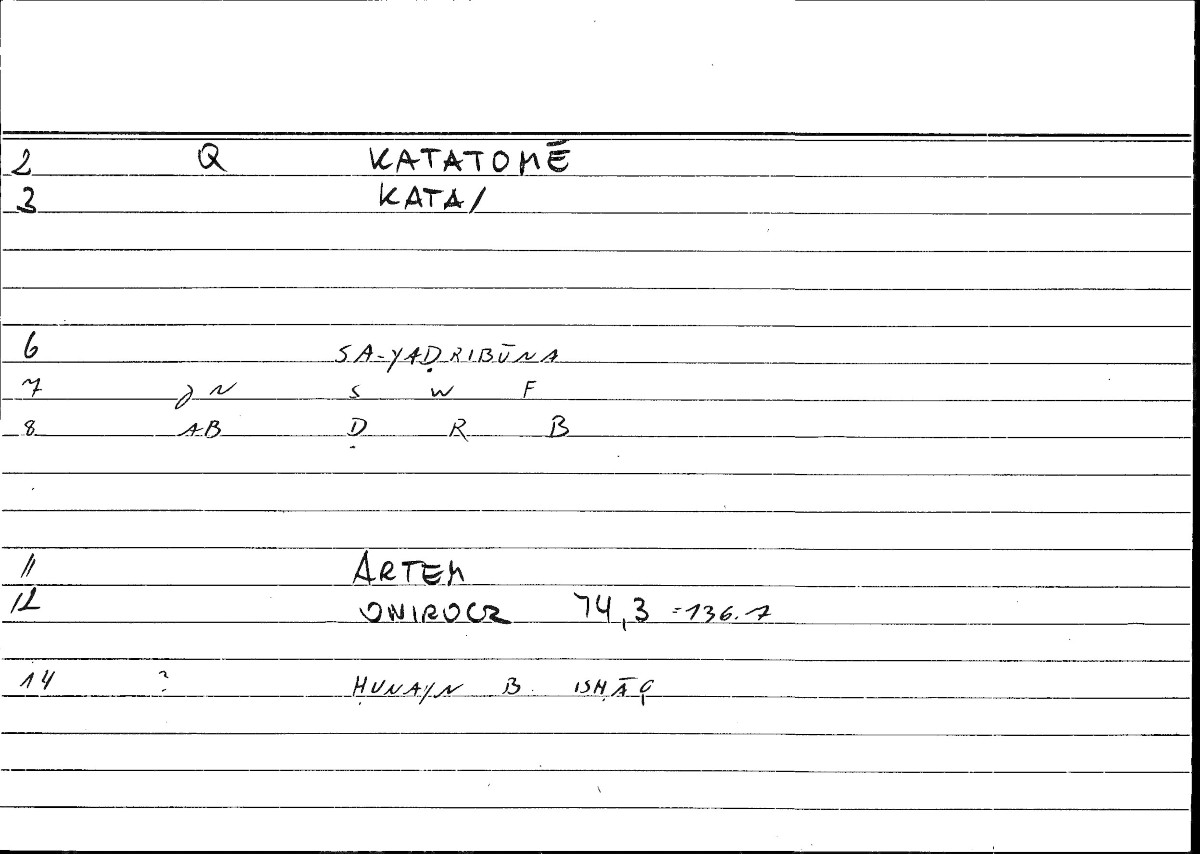 2 Q KATATOMĒ
3 KATA/
6 SA-YAḌRIBŪNA
7 N S W F
8 AB Ḍ R B
11 ARTEM
12 ONIROCR 74,3 =136.7
14 ? ḤUNAYN B. ISḤĀQ